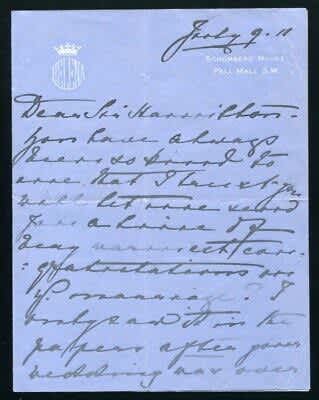 HELENA
July 9. 11
SCHOMBERG HOUSE
PALL MALL S.W.
Dear Sir
you have always
been so kind to
me that I trust you
will let me send
you a line of
very con-
:gratulations on
y. marriage? I
only saw it in the
papers after your
wedding was over